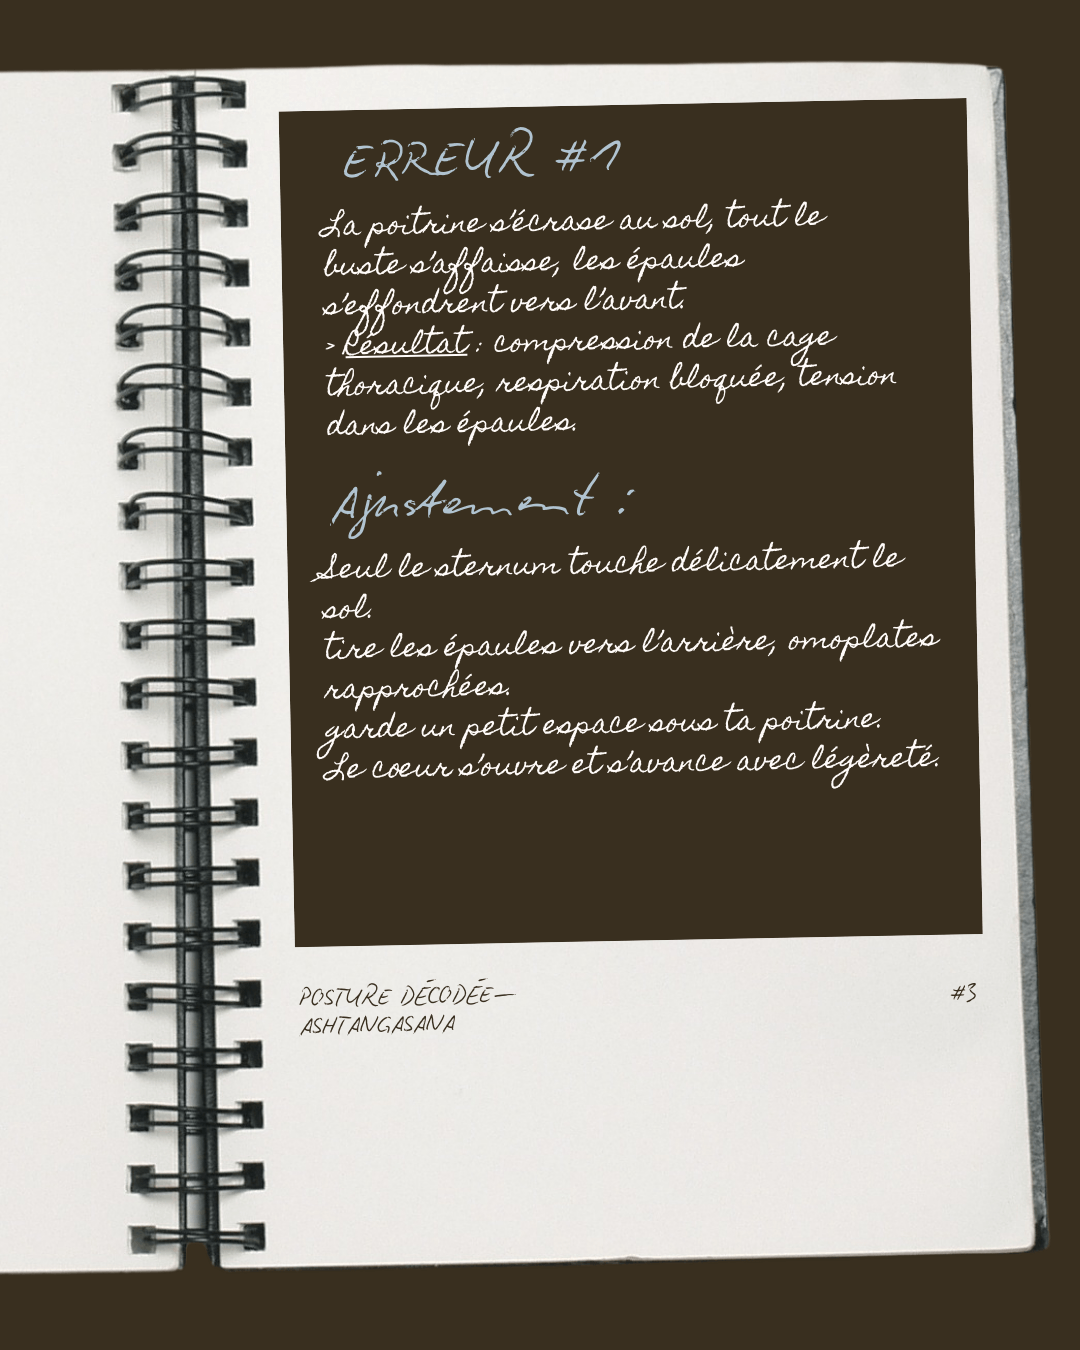 ERREUR #1
La poitrine s'écrase au sol, tout le
buste s'affaisse, les épaules
s'effondrent vers l'avant.
> Résultat : compression de la cage
thoracique, respiration bloquée, tension
dans les épaules.
Ajustement :
Seul le sternum touche délicatement le
sol.
tire les épaules vers l'arrière, omoplates
rapprochées.
garde un petit espace sous ta poitrine.
Le cœur s'ouvre et s'avance avec légèreté.
POSTURE DÉCODÉE—
ASHTANGASANA
#3